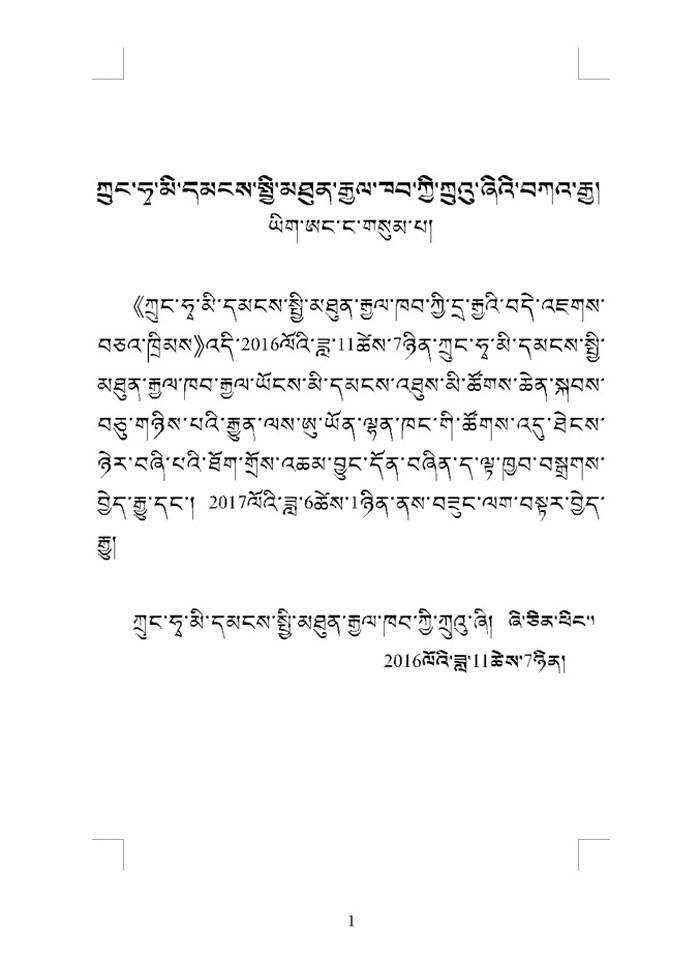 ཀྲུང་ཧྭ་མི་དམངས་སྤྱི་མཐུན་རྒྱལ་ཁབ་ཀྱི་ཀྲུའུ་ཞིའི་བཀའ་རྒྱ།
ཡིག་ཨང་ང་གསུམ་པ།
《ཀྲུང་ཧྭ་མི་དམངས་སྤྱི་མཐུན་རྒྱལ་ཁབ་ཀྱི་དྲ་རྒྱའི་བདེ་འཇགས་
བཅའ་ཁྲིམས》འདི་2016ལོའི་ཟླ་11ཚེས་7ཉིན་ཀྲུང་ཧྭ་མི་དམངས་སྤྱི་
མཐུན་རྒྱལ་ཁབ་རྒྱལ་ཡོངས་མི་དམངས་འཐུས་མི་ཚོགས་ཆེན་སྐབས་
བཅུ་གཉིས་པའི་རྒྱུན་ལས་ཨུ་ཡོན་ལྷན་ཁང་གི་ཚོགས་འདུ་ཐེངས་
ཉེར་བཞི་པའི་ཐོག་གྲོས་འཆམ་བྱུང་དོན་བཞིན་ད་ལྟ་ཁྱབ་བསྒྲགས་
བྱེད་རྒྱུ་དང་། 2017ལོའི་ཟླ་6ཚེས་1ཉིན་ནས་བཟུང་ལག་བསྟར་བྱེད་
རྒྱུ།
ཀྲུང་ཧྭ་མི་དམངས་སྤྱི་མཐུན་རྒྱལ་ཁབ་ཀྱི་ཀྲུའུ་ཞི། ཞི་ཅིན་ཕིང་།
2016ལོའི་ཟླ་11ཚེས་7ཉིན།
1